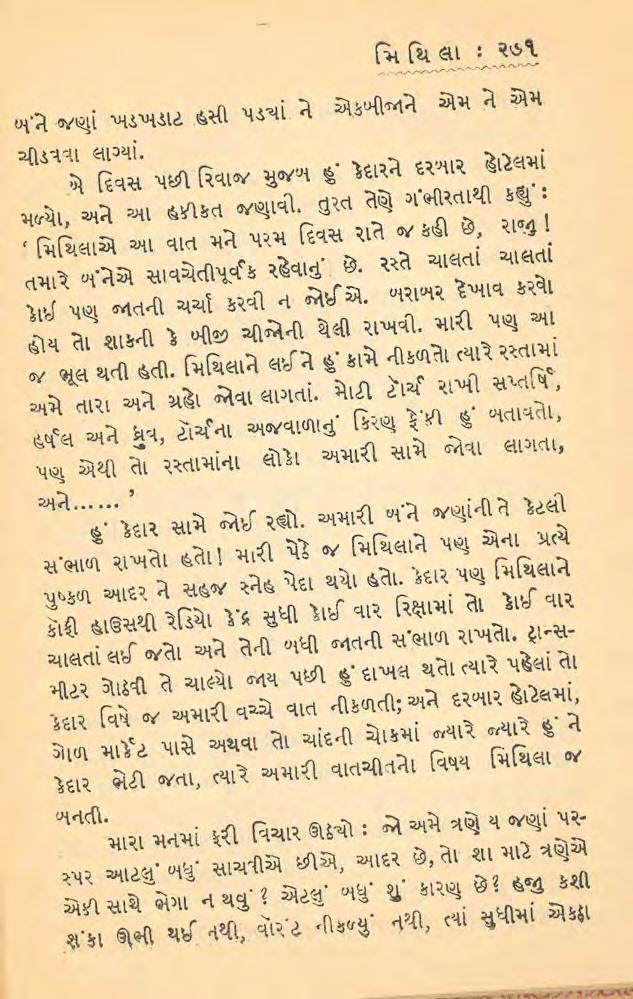 મિથિલા : ૨૭૧
બંને જણાં ખડખડાટ હસી પડ્યાં ને એકબીજાને એમ ને એમ
ચીડવવા લાગ્યાં.
બે દિવસ પછી રિવાજ મુજબ હું કેદારને દરબાર હોટેલમાં
મળ્યો, અને આ હકીકત જણાવી. તુરત તેણે ગંભીરતાથી કહ્યું :
‘ મિથિલાએ આ વાત મને પરમ દિવસ રાતે જ કહી છે, રાજુ !
તમારે બંનેએ સાવચેતીપૂર્વક રહેવાનું છે. રસ્તે ચાલતાં ચાલતાં
કોઈ પણ જાતની ચર્ચા કરવી ન જોઈએ. બરાબર દેખાવ કરવો
હોય તો શાકની કે બીજી ચીજોની થેલી રાખવી. મારી પણ આ
જ ભૂલ થતી હતી. મિથિલાને લઈને હું કામે નીકળતો ત્યારે રસ્તામાં
અમે તારા અને ગ્રહો જોવા લાગતાં. મોટી ટૉર્ચ રાખી સપ્તર્ષિ,
હર્ષલ અને ધ્રુવ, ટૉર્ચના અજવાળાનું કિરણ ફેંકી હું બતાવતો,
પણ એથી તો રસ્તામાંના લોકો અમારી સામે જોવા લાગતા,
અને...... ’
હું કેદાર સામે જોઈ રહ્યો. અમારી બંને જણાંની તે કેટલી
સંભાળ રાખતો હતો ! મારી પેઠે જ મિથિલાને પણ એના પ્રત્યે
પુષ્કળ આદર ને સહજ સ્નેહ પેદા થયો હતો. કેદાર પણ મિથિલાને
કૉફી હાઉસથી રેડિયો કેંદ્ર સુધી કોઈ વાર રિક્ષામાં તો કોઈ વાર
ચાલતાં લઈ જતો અને તેની બધી જાતની સંભાળ રાખતો. ટ્રાન્સ-
મીટર ગોઠવી તે ચાલ્યો જાય પછી હું દાખલ થતો ત્યારે પહેલાં તો
કેદાર વિષે જ અમારી વચ્ચે વાત નીકળતી; અને દરબાર હોટેલમાં,
ગોળ માર્કેટ પાસે અથવા તો ચાંદની ચોકમાં જ્યારે જ્યારે હું ને
કેદાર ભેટી જતા, ત્યારે અમારી વાતચીતનો વિષય મિથિલા જ
બનતી.
મારા મનમાં ફરી વિચાર ઊઠ્યો : જો અમે ત્રણે ય જણાં પર-
સ્પર આટલું બધું સાચવીએ છીએ, આદર છે, તો શા માટે ત્રણેએ
એકી સાથે ભેગા ન થવું ? એટલું બધું શું કારણ છે ? હજુ કશી
શંકા ઊભી થઈ નથી, વૉરંટ નીકળ્યું નથી, ત્યાં સુધીમાં એકઠા